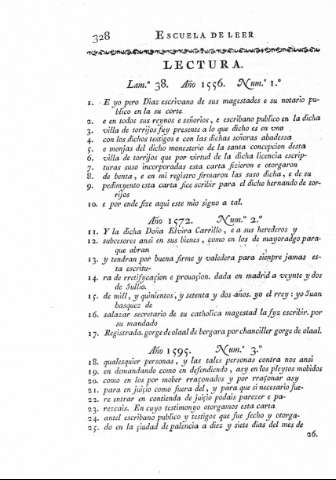 328 ESCUELA DE LEER
LECTURA.
Lam.ª 38. Año 1556. Num.º 1.º
1. E yo pero Diaz escrivano de sus magestades e su notario pu-
blico en la su corte
2. e en todos sus reynos e señorios, e escribano publico en la dicha
3. villa de torrijos fuy presente a lo que dicho es en una
4. con los dichos testigos e con las dichas señoras abadessa
5. e monjas del dicho monesterio de la santa concepcion desta
6. villa de torrijos que por virtud de la dicha licencia escrip-
7. turas suso incorporadas esta carta ficieron e otorgaron
8. de bonta, e en mi registro firmaron las suso dicha, e de su
9. pedimyento esta carta fice escribir para el dicho hernando de tor-
rijos
10. e por ende fize aqui este mio signo a tal.
Año 1572. Num.º 2.º
11. Y la dicha Doña Elvira Carrillo, e a sus herederos y
12. subcesores ansi en sus bienes, como en los de mayoradgo para-
que abran
13. y tendran por buena firme y valedera para siempre jamas es-
ta escritu-
14. ra de rretificaçion e prouaçion. dada en madrid a veynte y dos
de Jullio.
15. de mill, y quinientos, y setenta y dos años. yo el rrey: yo Juan
basquez de
16. salazar secretario de su catholica magestad la fyz escribir. por
su mandado
17. Registrada. gorge de olaal de bergara por chanciller gorge de olaal.
Año 1595. Num.º 3.º
18. qualesquier personas, y las tales personas contra nos ansi
19. en demandando como en defendiendo, asy en los pleytos mobidos
20. como en los por mober rraçonados y por rraçonar asy
21. para en juiçio como fuera del, y para que si necesario fue-
22. re entrar en contienda de juiçio podais parecer e pa-
23. rezcais. En cuyo testimonyo otorgamos esta carta
24. antel escribano publico y testigos que fue fecho y otorga-
25. do en la çiudad de palencia a diez y siete dias del mes de
26.